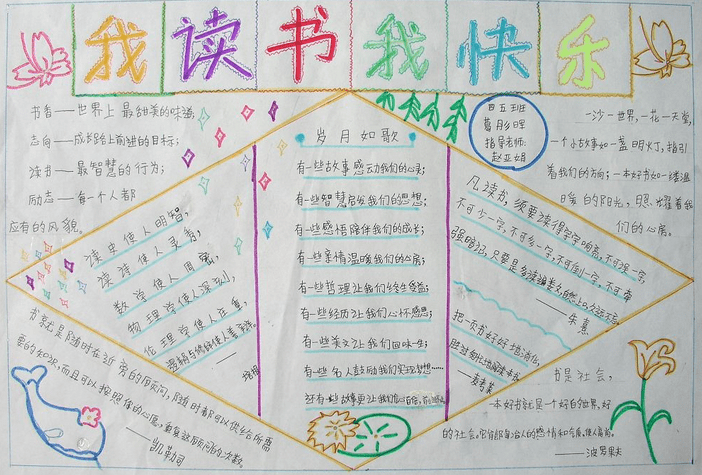 我读书我快乐
书香——世界上最甜美的味道,
志向——成长路上前进的目标;
读书——最智慧的行为;
励志——每一个人都
应有的风貌。
四五班
葛彤晖
指导老师:
赵亚娟
一沙一世界,一花一天堂,
一个小故事如一盏明灯,指引
着我们的方向;一本好书如一缕温
暖的阳光,照耀着我
们的心房。
读史使人明智,
读诗使人灵秀,
数学使人周密,
物理学使人深刻,
伦理学使人庄重,
逻辑与修辞使人善辩。
——培根
岁月如歌
有一些故事感动我们的心灵;
有一些智慧启发我们的思想;
有一些感悟陪伴我们的成长;
有一些亲情温暖我们的心房;
有一些哲理让我们终生受益;
有一些经历让我们心怀感恩;
有一些美文让我们回味一生;
有一些名人鼓励我们实现梦想……
还有一些故事更让我们信心百倍,
凡读书,须要读得字字响亮,不可误一字,
不可少一字,不可多一字,不可倒一字,不可牵
强暗记,只要是多读遍数,自然上口,久远不忘。
——朱熹
把一页书好好地消化,
胜过匆忙地阅读一本书。
——麦考莱
书就是随时在近旁的顾问,随时都可以供给你所需
要的知识,而且可以按照你的心愿,重复这顾问的次数。
——凯勒司
书是社会,
一本好书就是一个好的世界,好
的社会。它能陶冶人的感情和气质,使人高尚。
——波罗果夫